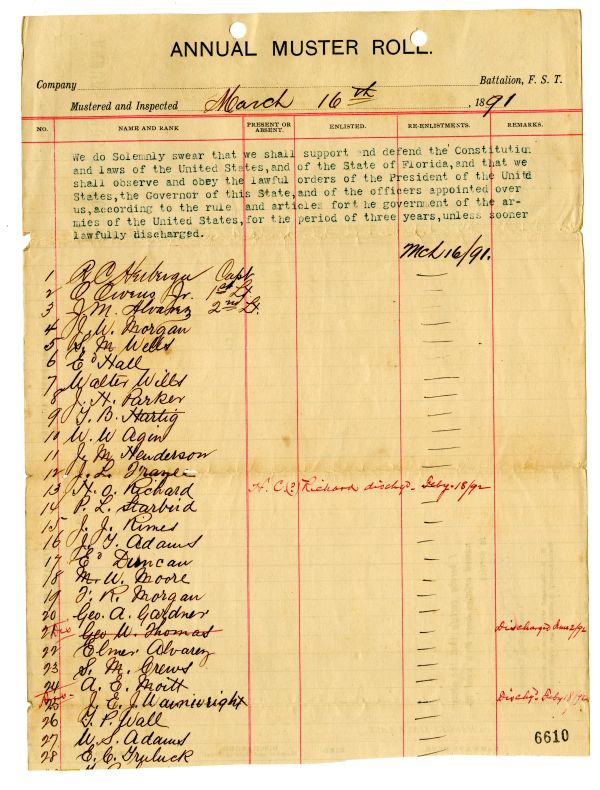 ANNUAL MUSTER ROLL.
Company Battalion, F. S. T.
Mustered and Inspected March 16th , 1891
NO. NAME AND RANK PRESENT OR ABSENT. ENLISTED. RE-ENLISTMENTS. REMARKS.
We do Solemnly swear that we shall support and defend the Constitution
and laws of the United States,and of the State of Florida,and that we
shall observe and obey the lawful orders of the President of the Unitd
States,the Governor of this State,and of the officers appointed over
us,according to the rule and articles fort he goverment of the ar-
mies of the United States,for the period of three years,unless sooner
lawfully discharged.
Mch 16/91.
1 R. C. Capt
2 E Owens Jr. 1st Lt.
3 J. M. Alvarez 2nd Lt.
4 J. W. Morgan
5 S. M Wells
6 Ed Hall
7 Walter Wills
8 J. H. Parker
9 T. B. Hartig
10 W. W Agin
11 J. M. Henderson
12 J. L.
13 H. O. Richard H. C. Richard dischgd Feby 18/92
14 P. L. Starbird
15 J. J. Rimes
16 J. T. Adams
17 Ed Duncan
18 M. W. Moore
19 F. R. Morgan
20 Geo. A. Gardner
21 Dis Geo W. Thomas Discharged June 2/92
22 Elmer Alvarez
23 S. M. Crews
24 A. E. Moitt
25 Dis. J. E. J. Wainwright Dischgd Feby 18/92
26 T. P. Wall
27 W. S. Adams
28 E. C. Truluck
6610